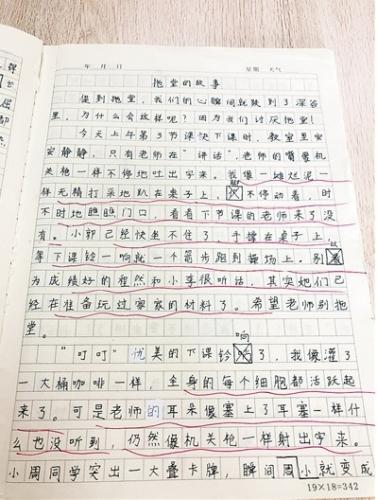 年 月 日 星期 天气
拖堂的故事
提到拖堂，我们的心瞬间就跌到了深谷
里，为什么会这样呢？因为我们讨厌拖堂！
今天上午第3节课快下课时，教室里安
安静静，只有老师在“讲话”，老师的嘴像机
关枪一样不停地吐出字来。我像一摊烂泥一
样无精打采地趴在桌子上，不停动着，时
不时地瞧瞧门口，看看下节课的老师来了没
有。小郭已经快坐不住了，手撑在桌子上，
等下课铃一响就一个箭步跑到操场上。别
为成绩好的崔然和小李很听话，其实她们已
经在准备玩过家家的材料了。希望老师别拖
堂。
“叮叮”优美的下课铃响了，我像灌了
一大桶咖啡一样，全身的每个细胞都活跃起
来了。可是老师的耳朵像塞上了耳塞一样什
么也没听到，仍然像机关枪一样射出字来。
小周同学突出一大叠卡牌，瞬间周小就变成
19×18=342